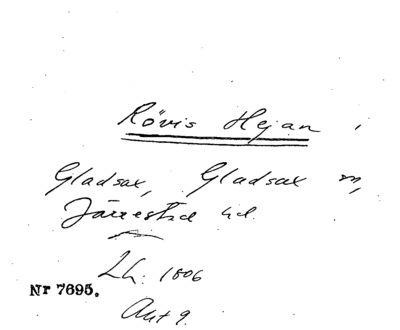 Rövis Hejan,
Gladsax, Gladsax sn,
Järrestad hd.
Lh. 1806
Nr 7695.
Akt 9.